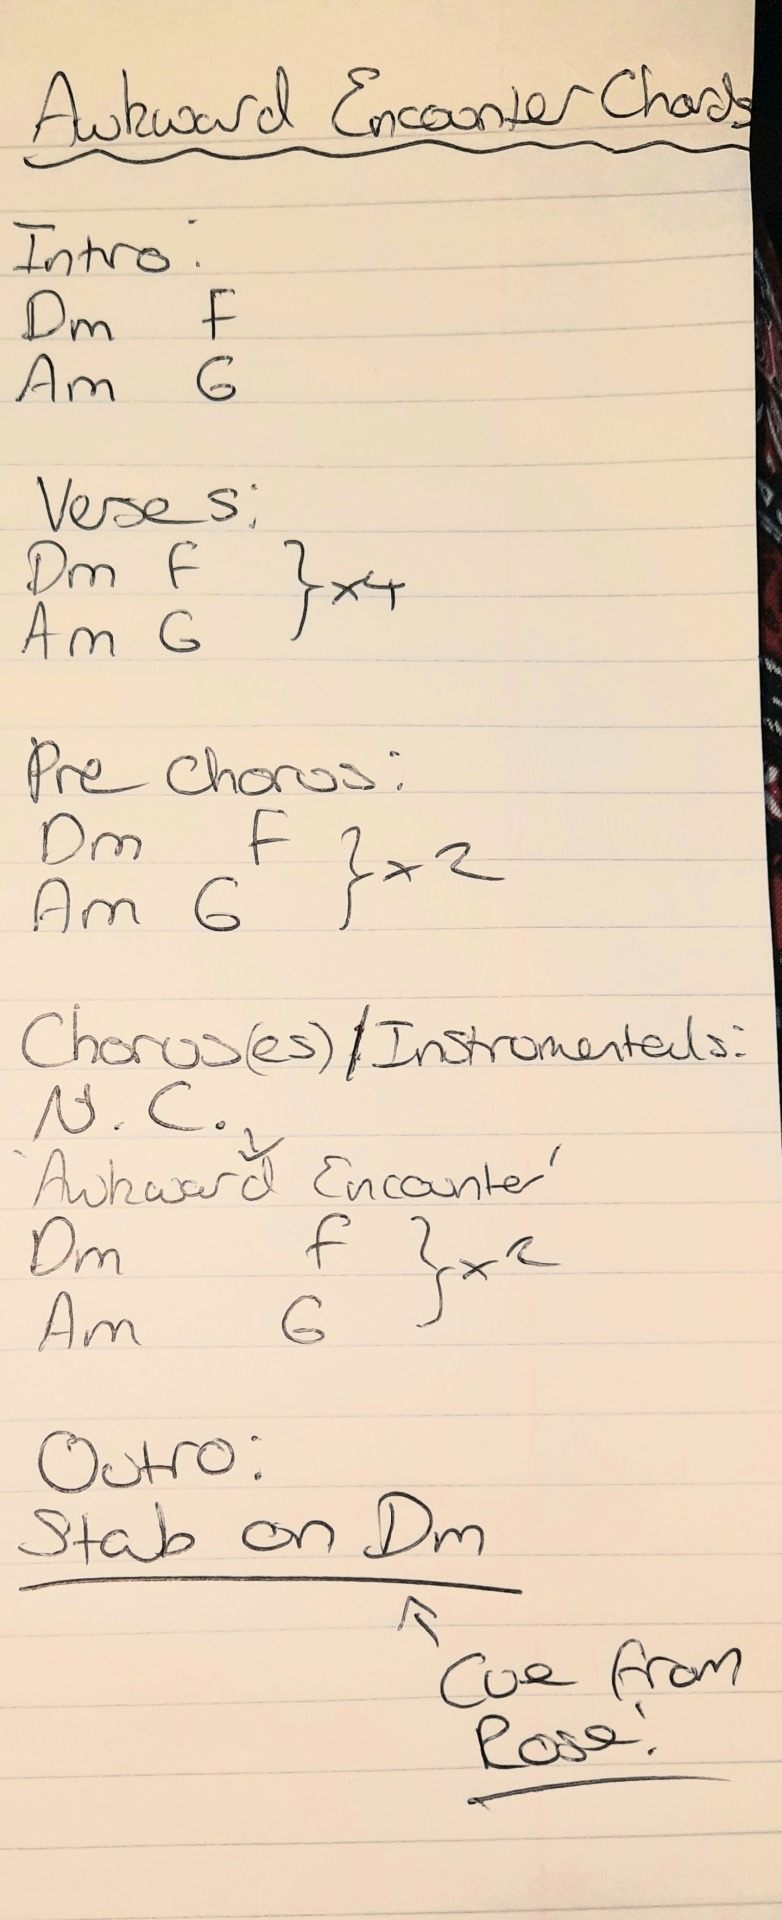 Awkward Encounter Chords
Intro:
Dm F
Am G
Verses:
Dm F } x4
Am G
Pre Chorus:
Dm F } x2
Am G
Chorus(es) / Instrumentals:
N.C. ↓
'Awkward Encounter'
Dm F } x2
Am G
Outro:
Stab on Dm
↖
Cue from
Rose!